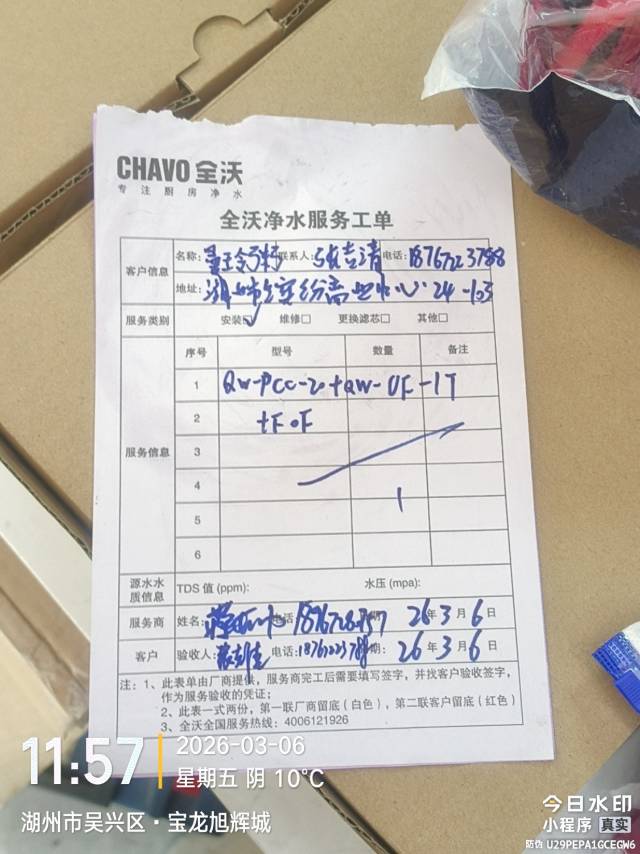 CHAVO 全沃
专注厨房净水
全沃净水服务工单
客户信息 名称: 联系人: 电话: 18767223788
地址: 24-103
服务类别 安装☑ 维修□ 更换滤芯□ 其他□
服务信息 序号 型号 数量 备注
1 QW-PCC-20+QW-UF-1T
2 +F0F
3
4
5 1
6
源水水质信息 TDS 值 (ppm): 水压 (mpa):
服务商 姓名: 电话 期: 26年3月6日
客户 验收人: 电话: 18767223788 期: 26年3月6日
注: 1、此表单由厂商提供，服务商完工后需要填写签字，并找客户验收签字，
作为服务验收的凭证；
2、此表一式两份，第一联厂商留底（白色），第二联客户留底（红色）
3、全沃全国服务热线：4006121926
11:57 2026-03-06
星期五 阴 10°C
湖州市吴兴区·宝龙旭辉城
今日水印
小程序 真实
防伪 U29PEPA1GCEGW6